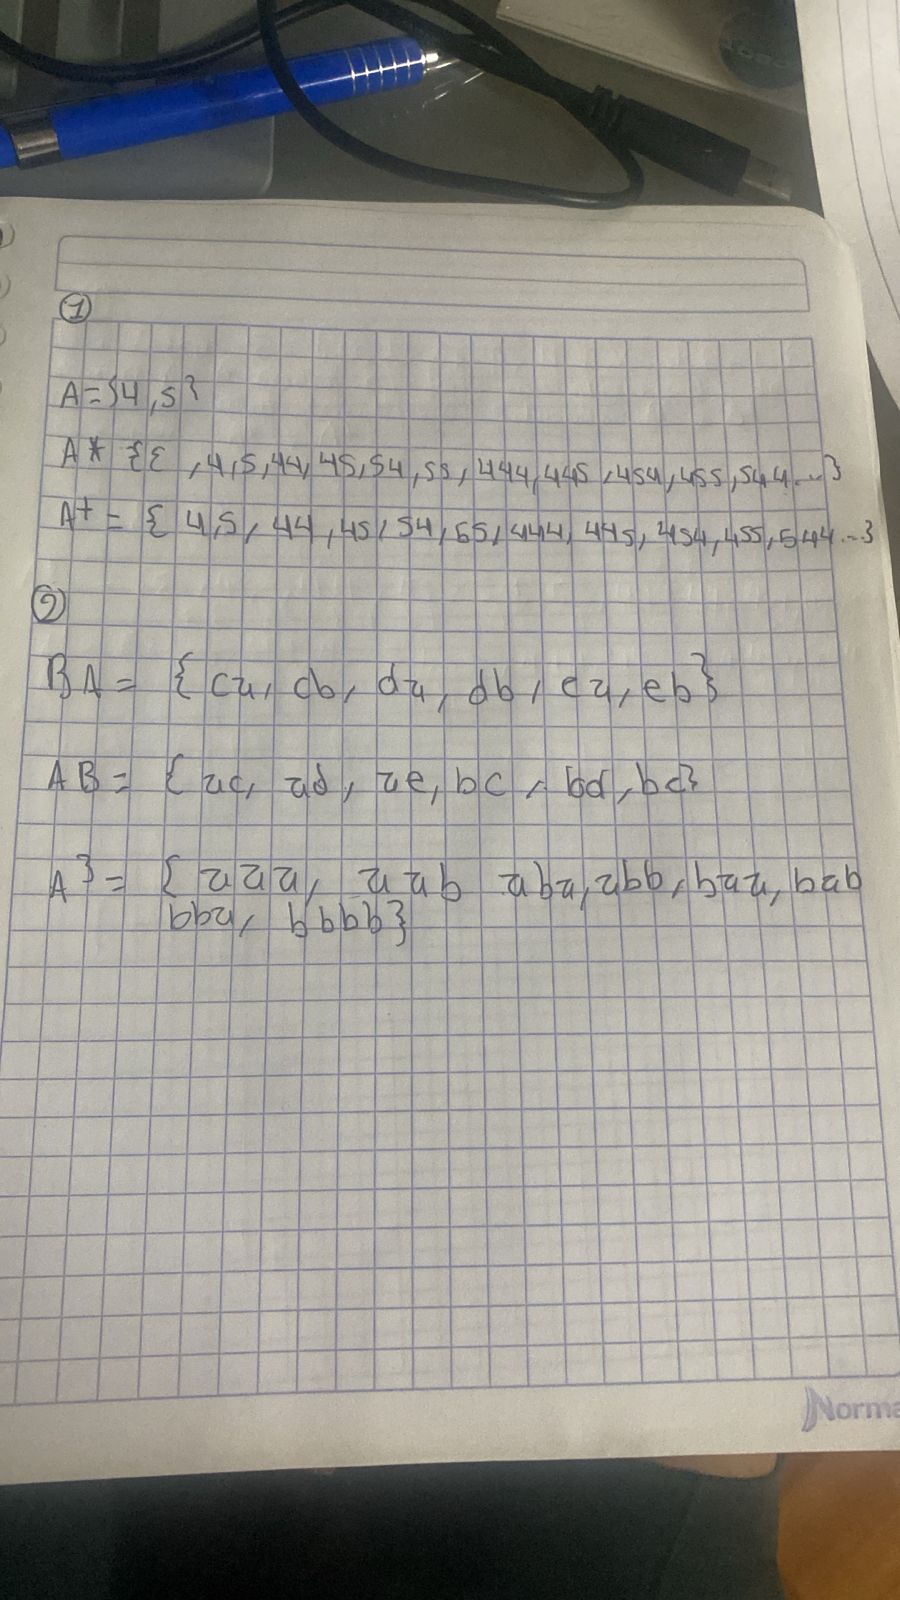 1
A={4,5}
A* {ε ,4,5,44,45,54,55,444,445,454,455,544...}
A+ = { 4,5, 44,45,54,55,444,445,454,455,544...}
2
BA = {ca, cb, da, db, ea, eb}
AB = {ac, ad, ae, bc, bd, be}
A3 = {aaa, aab aba, abb, baa, bab
bba, bbbb}
Norma